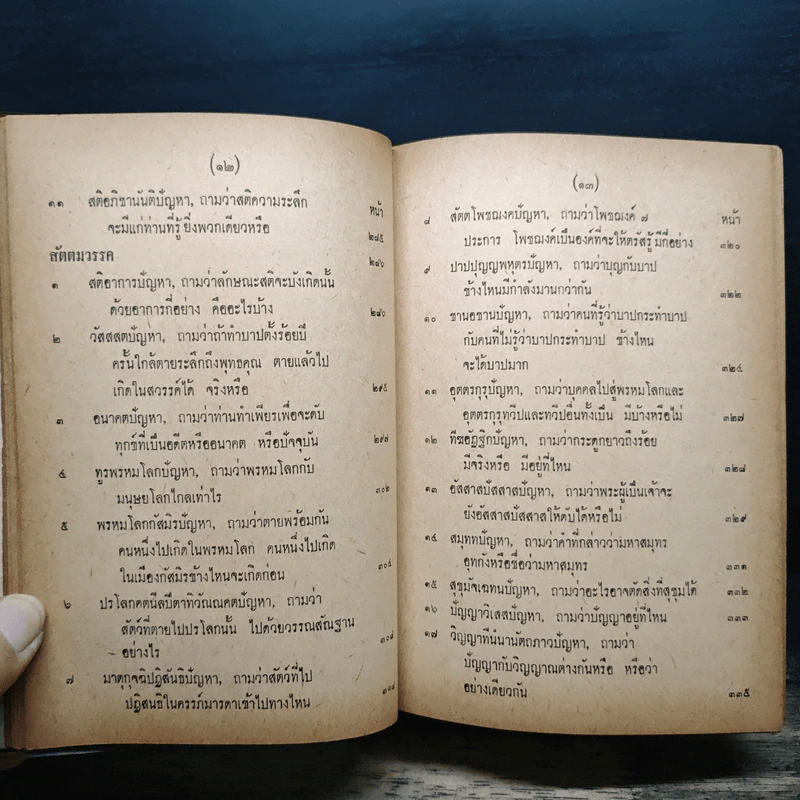 (๑๒)
หน้า
๑๑ สติอภิชานันติปัญหา, ถามว่าสติความระลึก
จะมีแก่ท่านที่รู้ยิ่งพวกเดียวหรือ ๒๘๕
สัตตมวรรค ๒๘๖
๑ สติอาการปัญหา, ถามว่าลักษณะสติจะบังเกิดนั้น
ด้วยอาการกี่อย่าง คืออะไรบ้าง ๒๘๖
๒ วัสสสตปัญหา, ถามว่าถ้าทำบาปตั้งร้อยปี
ครั้นใกล้ตายระลึกถึงพุทธคุณ ตายแล้วไป
เกิดในสวรรค์ได้ จริงหรือ ๒๙๕
๓ อนาคตปัญหา, ถามว่าท่านทำเพียรเพื่อจะดับ
ทุกข์ที่เป็นอดีตหรืออนาคต หรือปัจจุบัน ๒๙๗
๔ ทูรพรหมโลกปัญหา, ถามว่าพรหมโลกกับ
มนุษยโลกไกลเท่าไร ๓๐๒
๕ พรหมโลกกัสมิรปัญหา, ถามว่าตายพร้อมกัน
คนหนึ่งไปเกิดในพรหมโลก คนหนึ่งไปเกิด
ในเมืองกัสมิรข้างไหนจะเกิดก่อน ๓๐๔
๖ ปรโลกคตนีลปีตาทิวัณณคตปัญหา, ถามว่า
สัตว์ที่ตายไปปรโลกนั้น ไปด้วยวรรณสัณฐาน
อย่างไร ๓๐๘
๗ มาตุกุจฉิปฏิสันธิปัญหา, ถามว่าสัตว์ที่ไป
ปฏิสนธิในครรภ์มารดาเข้าไปทางไหน
(๑๓)
หน้า
๘ สัตตโพชฌงคปัญหา, ถามว่าโพชฌงค์ ๗
ประการ โพชฌงค์เป็นองค์ที่จะให้ตรัสรู้มีกี่อย่าง ๓๒๐
๙ ปาปปุญญพหุตรปัญหา, ถามว่าบุญกับบาป
ข้างไหนมีกำลังมากกว่ากัน ๓๒๒
๑๐ ชานอชานปัญหา, ถามว่าคนที่รู้ว่าบาปกระทำบาป
กับคนที่ไม่รู้ว่าบาปกระทำบาป ข้างไหน
จะได้บาปมาก ๓๒๔
๑๑ อุตตรกุรุปัญหา, ถามว่าบุคคลไปสู่พรหมโลกและ
อุตตรกุรุทวีปและทวีปอื่นทั้งเป็น มีบ้างหรือไม่ ๓๒๗
๑๒ ทีฆอัฏฐิกปัญหา, ถามว่ากระดูกยาวถึงร้อย
มีจริงหรือ มีอยู่ที่ไหน ๓๒๘
๑๓ อัสสาสปัสสาสปัญหา, ถามว่าพระผู้เป็นเจ้าจะ
ยังอัสสาสปัสสาสให้ดับได้หรือไม่ ๓๒๙
๑๔ สมุททปัญหา, ถามว่าคำที่กล่าวว่ามหาสมุทร
อุทกังหรือชื่อว่ามหาสมุทร ๓๓๑
๑๕ สุขุมัจเฉทนปัญหา, ถามว่าอะไรอาจตัดสิ่งที่สุขุมได้ ๓๓๒
๑๖ ปัญญาวิเสสปัญหา, ถามว่าปัญญาอยู่ที่ไหน ๓๓๓
๑๗ วิญญาทีนํนานัตถภาวปัญหา, ถามว่า
ปัญญากับวิญญาณต่างกันหรือ หรือว่า
อย่างเดียวกัน ๓๓๕